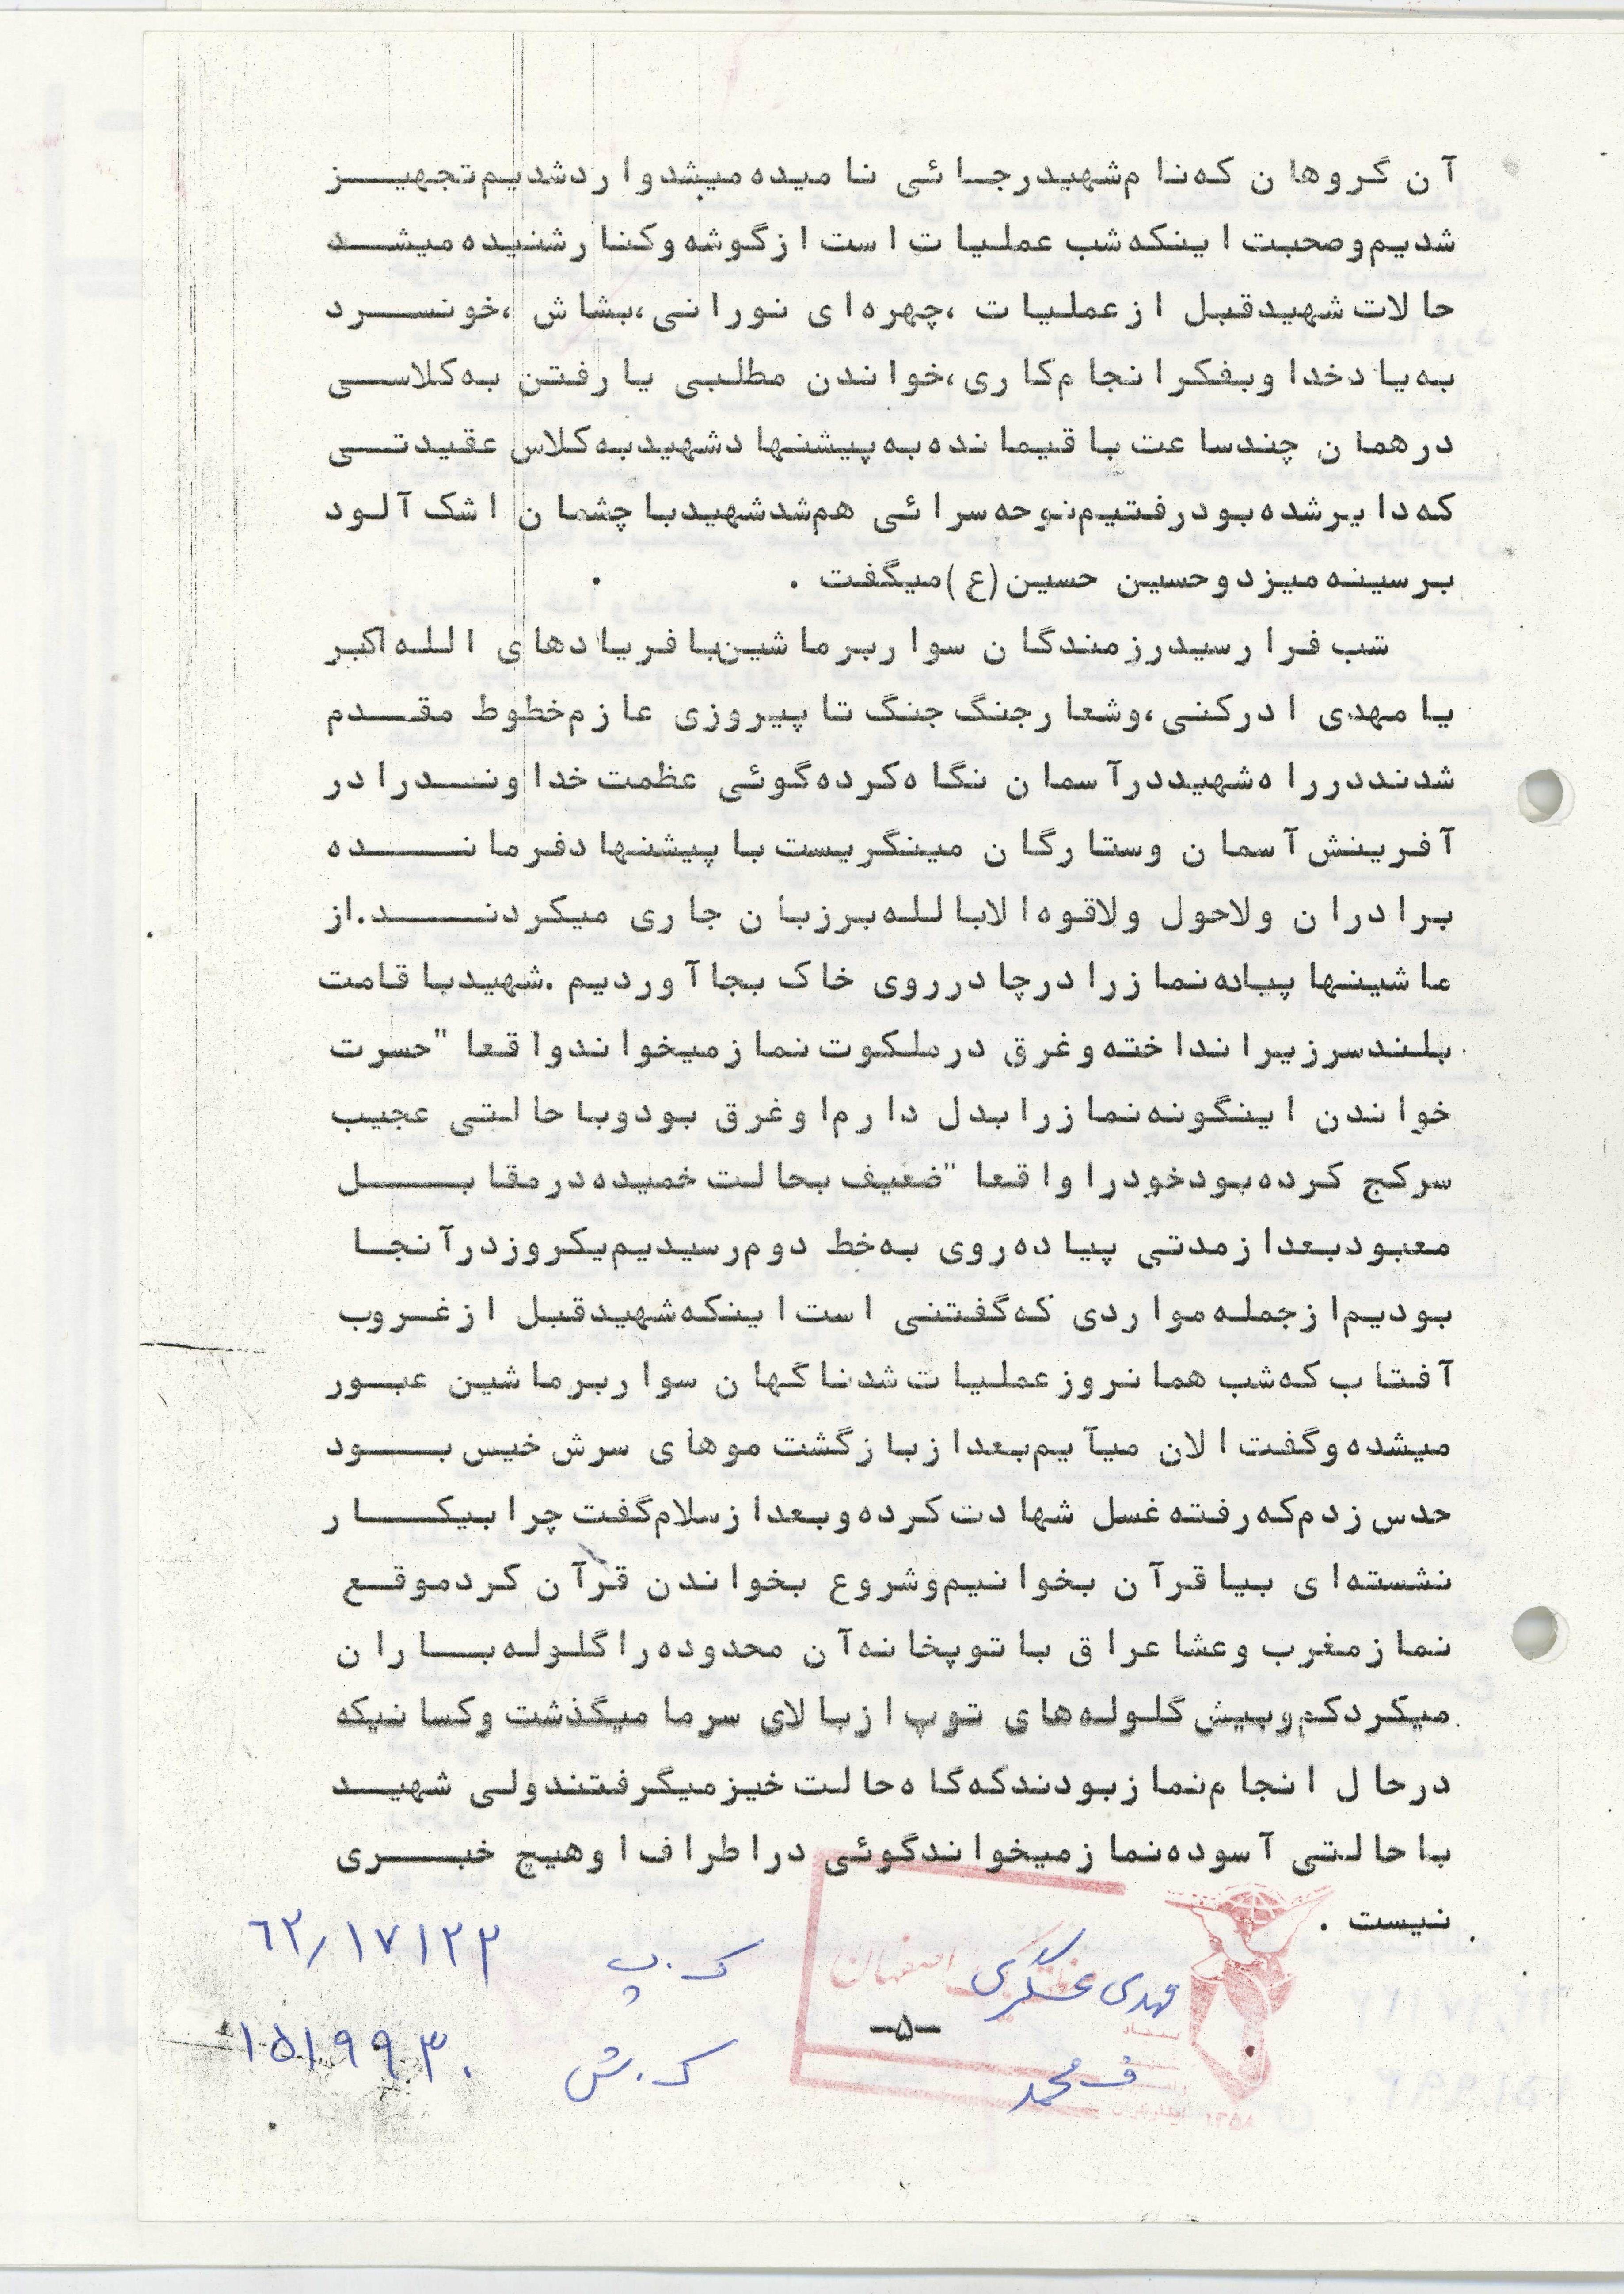 آن گروهان که نام شهیدرجائی نامیده میشد واردشدیم تجهیز
شدیم وصحبت اینکه شب عملیات است ازگوشه وکنارشنیده میشد
حالات شهیدقبل ازعملیات ،چهره ای نورانی،بشاش ،خونسرد
به یادخدا وبفکرانجام کاری،خواندن مطلبی یارفتن به کلاسی
درهمان چندساعت باقیمانده به پیشنهادشهیدبه کلاس عقیدتی
که دایرشده بودرفتیم نوحه سرائی هم شدشهیدباچشمان اشک آلود
برسینه میزدوحسین حسین(ع)میگفت .
شب فرارسیدرزمندگان سواربرماشین بافریادهای الله اکبر
یامهدی ادرکنی،وشعارجنگ جنگ تاپیروزی عازم خطوط مقدم
شدنددرراه شهیددرآسمان نگاه کرده گوئی عظمت خداوندرادر
آفرینش آسمان وستارگان مینگریست باپیشنهادفرمانده
برادران ولاحول ولاقوه الابالله برزبان جاری میکردند.از
ماشینها پیاده نمازرادرچادرروی خاک بجاآوردیم .شهیدباقامت
بلندسرزیرانداخته وغرق درملکوت نمازمیخواندواقعا "حسرت
خواندن اینگونه نمازرابدل دارم اوغرق بودوباحالتی عجیب
سرکج کرده بودخودراواقعا "ضعیف بحالت خمیده درمقابل
معبودبعدازمدتی پیاده روی به خط دوم رسیدیم یکروزدرآنجا
بودیم ازجمله مواردی که گفتنی است اینکه شهیدقبل ازغروب
آفتاب که شب همانروزعملیات شدناگهان سواربرماشین عبور
میشده وگفت الان میآیم بعدازبازگشت موهای سرش خیس بود
حدس زدم که رفته غسل شهادت کرده وبعدازسلام گفت چرابیکار
نشسته ای بیاقرآن بخوانیم وشروع بخواندن قرآن کردموقع
نمازمغرب وعشاعراق باتوپخانه آن محدوده راگلوله باران
میکردکم وبیش گلوله های توپ ازبالای سرمامیگذشت وکسانیکه
درحال انجام نمازبودندکه گاه حالت خیزمیگرفتندولی شهید
باحالتی آسوده نمازمیخواندگوئی دراطراف اوهیچ خبری
نیست .
مهدی عسگری ک.پ ۶۲/۱۷۱۲۳
اصفهان
-۵-
ف محمد ک.ش ۱۵۱۹۹۳۰
۱۳۵۸